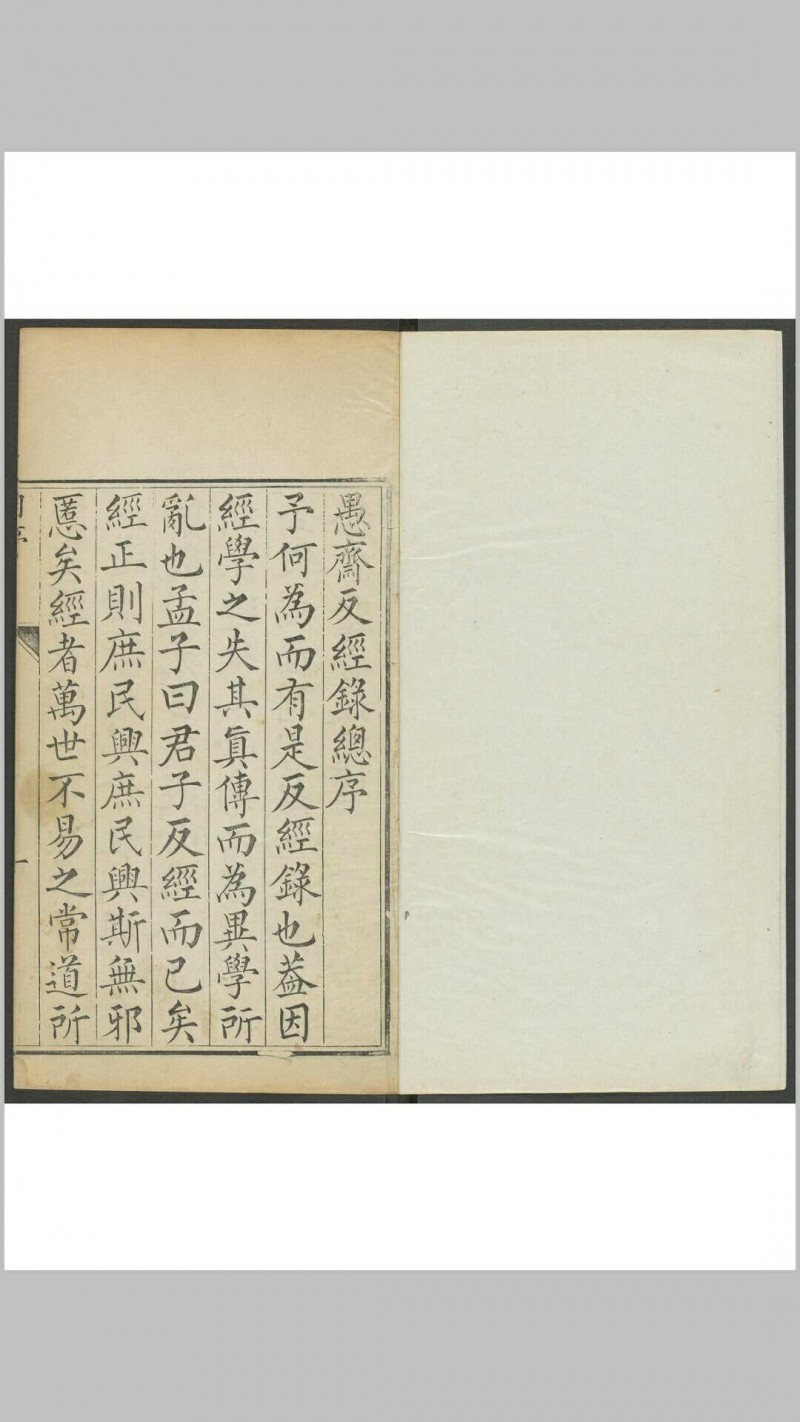 愚齋反經錄總序
予何為而有是反經錄也葢因
經學之失其眞傳而為異學所
亂也孟子曰君子反經而已矣
經正則庶民興庶民興斯無邪
慝矣經者萬世不易之常道所